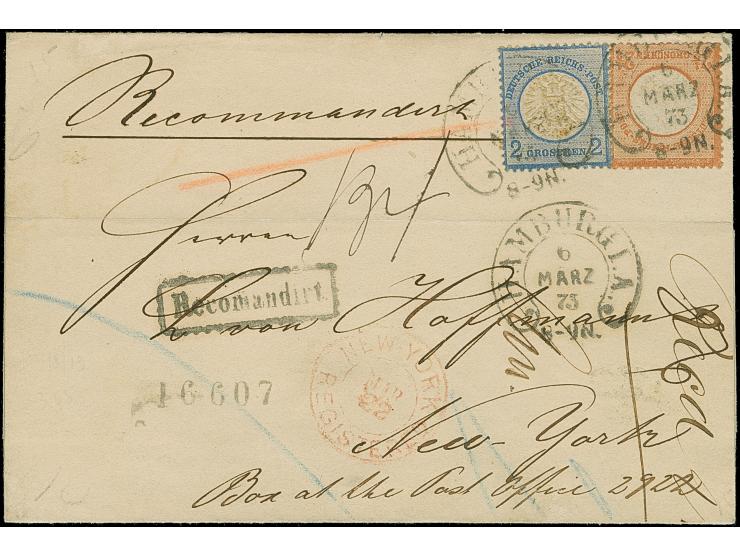 Recommandirt
DEUTSCHE REICHS-POST
2 GROSCHEN 2
8-9N.
6
MÄRZ
73
8-9N.
Herren
Recomandirt
L von Hoffmann
HAMBURG I.A.
6
MÄRZ
73
8-9N.
NEW-YORK
22
REGISTERED
16607
New-York
Box at the Post Office 2922